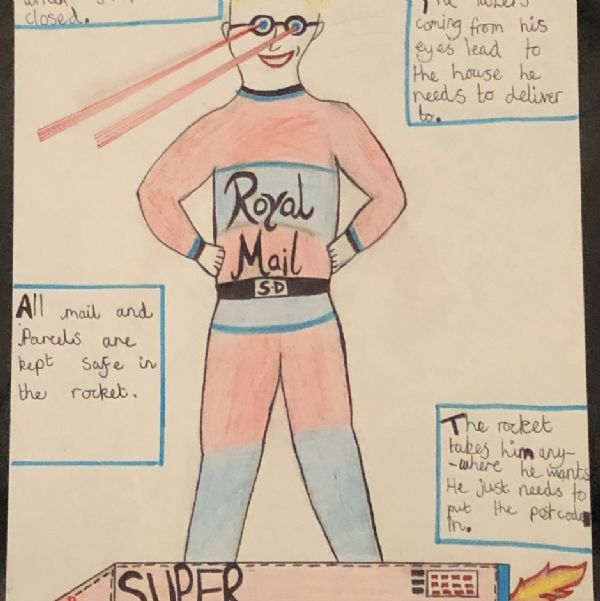 closed.
coming from his
eyes lead to
the house he
needs to deliver
to.
Royal
Mail
S·D
All mail and
Parcels are
kept safe in
the rocket.
The rocket
takes him any-
-where he wants
He just needs to
put the postcode
in.
SUPER